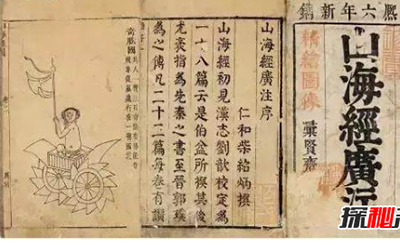 六年新鐫
精繪圖像
山海經廣注
彙賢齋
山海經廣注序
仁和柴紹炳撰
山海經初見漢志劉歆校定為
一十八篇云是伯益所撰其後
尤袤指為先秦之書至晉郭璞
為之傳凡二十三篇每卷有讚
奇肱國
探秘